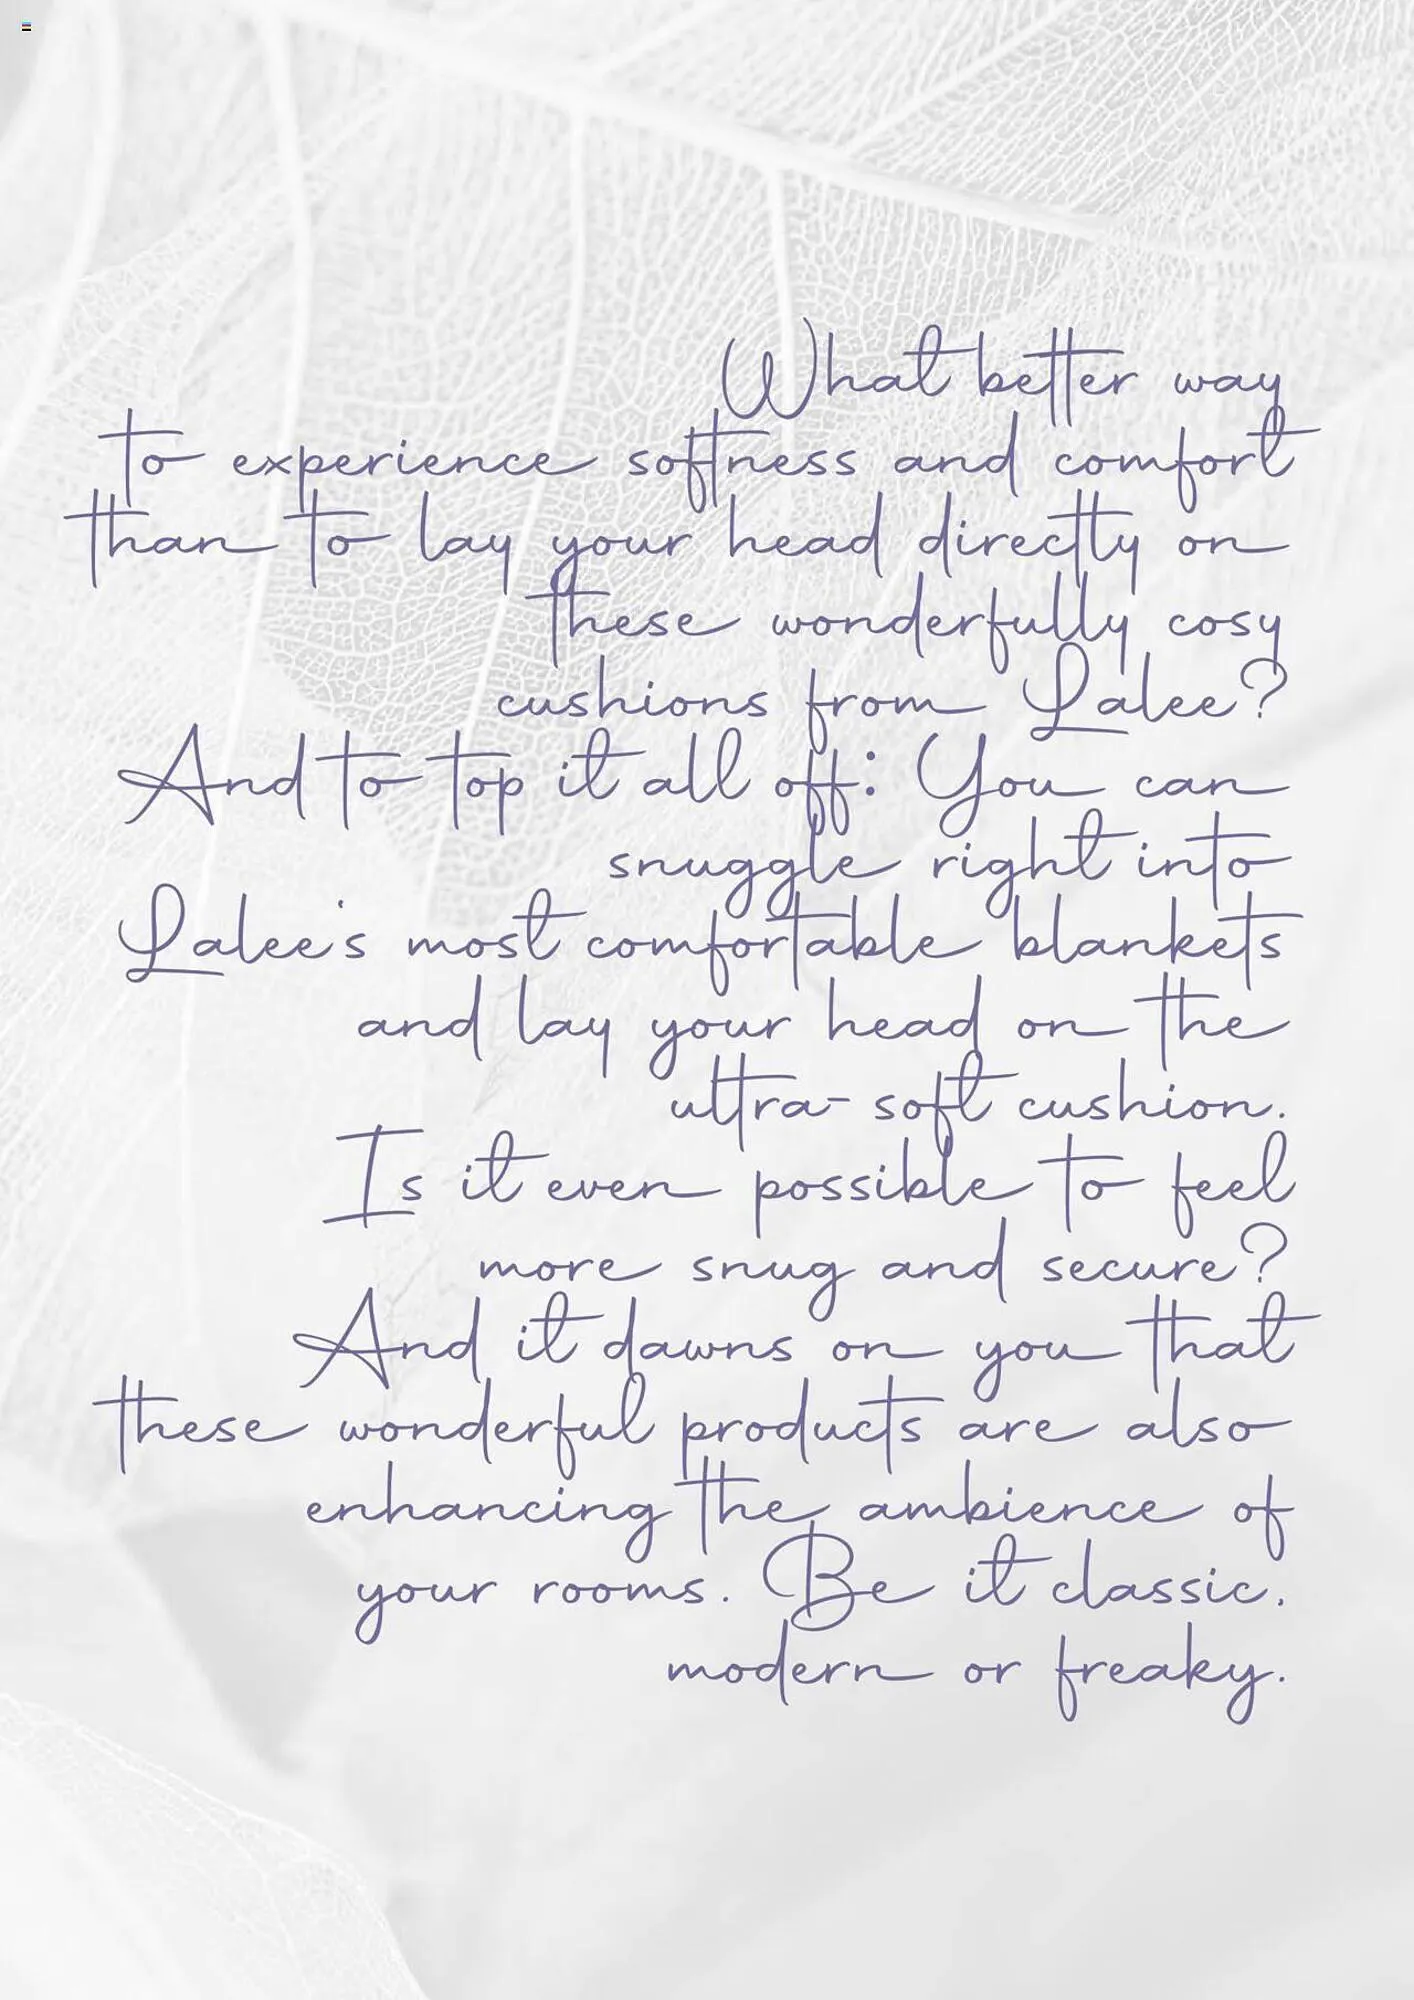 What better way
to experience softness and comfort
than to lay your head directly on
these wonderfully cosy
cushions from Lalee?
And to top it all off: You can
snuggle right into
Lalee's most comfortable blankets
and lay your head on the
ultra-soft cushion.
Is it even possible to feel
more snug and secure?
And it dawns on you that
these wonderful products are also
enhancing the ambience of
your rooms. Be it classic,
modern or freaky.